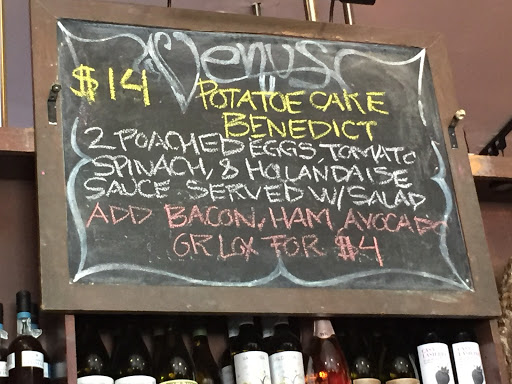 Venus
$14
POTATOE CAKE
BENEDICT
2 POACHED EGGS, TOMATO
SPINACH, & HOLLANDAISE
SAUCE SERVED W/ SALAD
ADD BACON, HAM, AVOCADO
OR LOX FOR $4